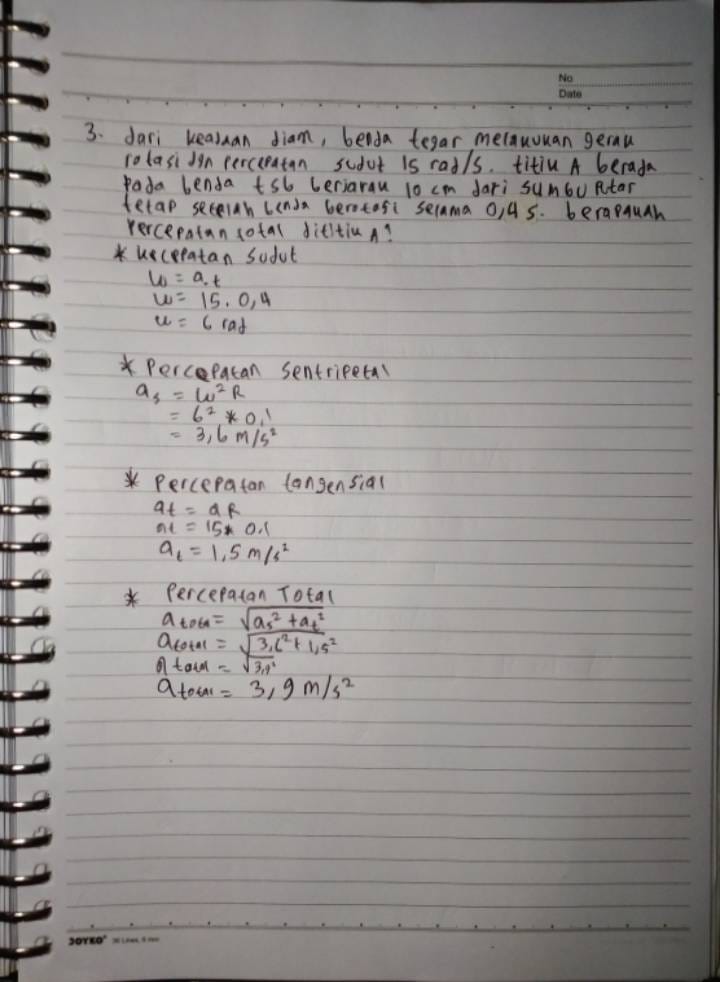 No
Date
3. dari keadaan diam, benda tegar melakukan gerak
rotasi dgn percepatan sudut 15 rad/s. titik A berada
pada benda tsb berjarak 10 cm dari sumbu Putar
tetap setelah benda berotasi selama 0,4 s. berapakah
Percepatan total dititik A?
* kecepatan sudut
ω = a.t
ω = 15. 0,4
ω = 6 rad
* Percepatan Sentripetal
as = ω² R
= 6² * 0,1
= 3,6 m/s²
* Percepatan tangensial
at = a R
at = 15* 0.1
at = 1,5 m/s²
* Percepatan Total
a total = √as² + at²
a total = √3,6² + 1,5²
a total = √3,9²
a total = 3,9 m/s²
JOYKO